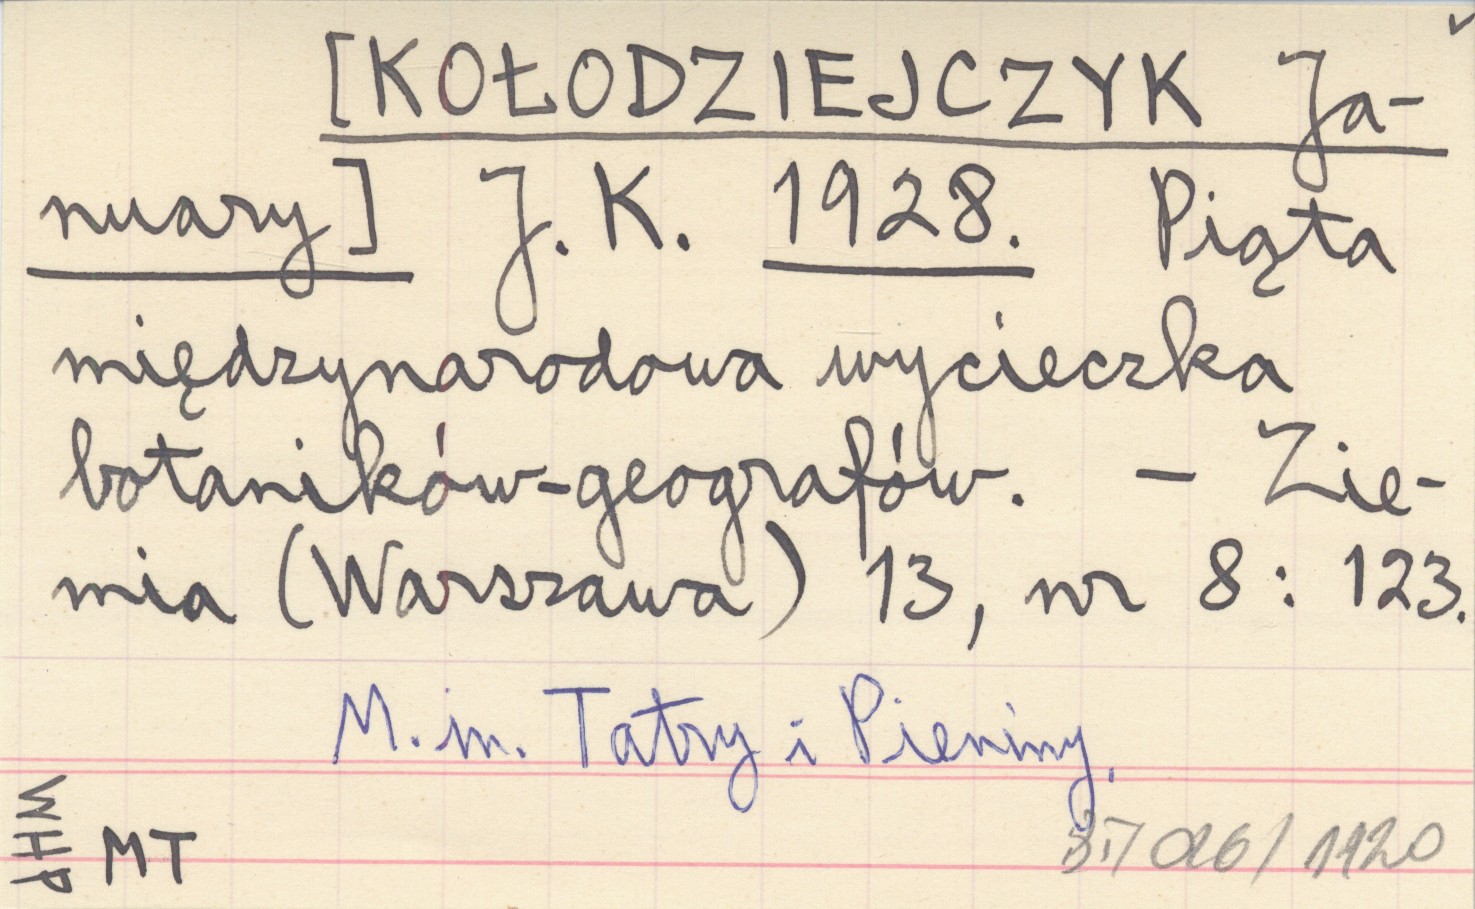 [KOŁODZIEJCZYK Ja-
nuary] J. K. 1928. Piąta
międzynarodowa wycieczka
botaników-geografów. – Zie-
mia (Warszawa) 13, nr 8: 123.
M. in. Tatry i Pieniny.
WHP
MT